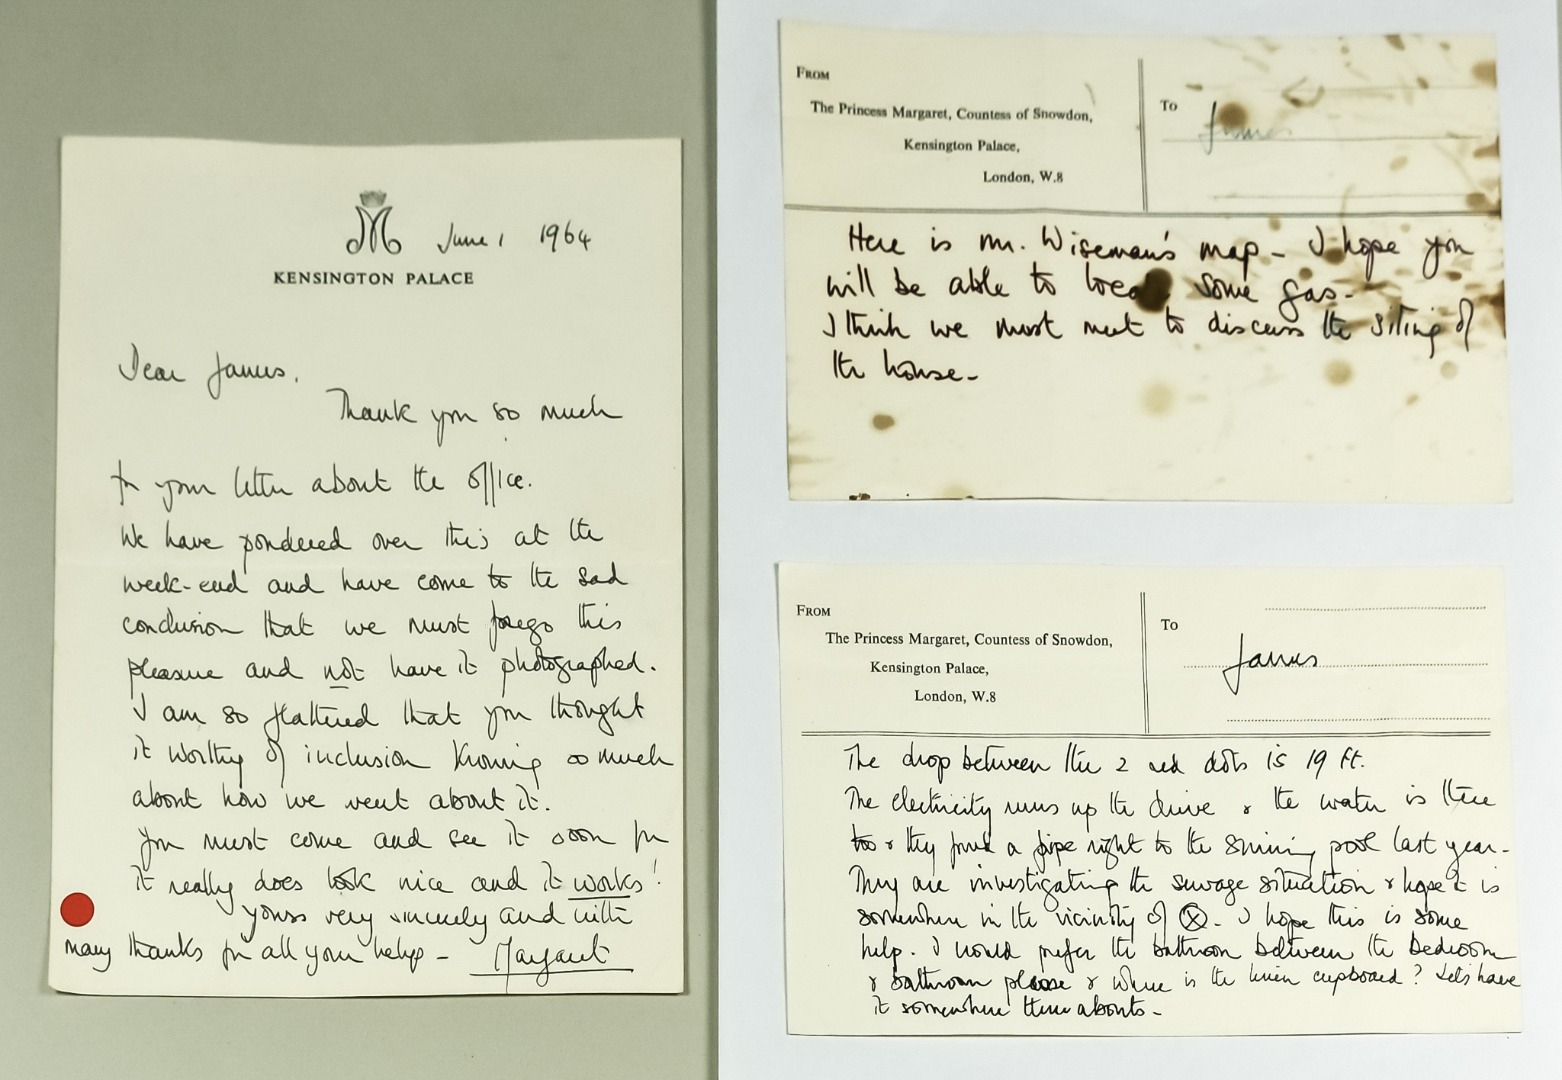 M
June 1 1964
KENSINGTON PALACE
Dear James,
Thank you so much
for your letter about the office.
We have pondered over this at the
week-end and have come to the sad
conclusion that we must forego this
pleasure and not have it photographed.
I am so flattered that you thought
it worthy of inclusion knowing so much
about how we went about it.
You must come and see it soon for
it really does look nice and it works!
yours very sincerely and with
many thanks for all your help - Margaret
FROM
The Princess Margaret, Countess of Snowdon,
Kensington Palace,
London, W.8
To
James
Here is Mr. Wiseman's map - I hope you
will be able to some gas -
I think we must meet to discuss the siting of
the house -
FROM
The Princess Margaret, Countess of Snowdon,
Kensington Palace,
London, W.8
To
James
The drop between the 2 red dots is 19 ft.
The electricity runs up the drive & the water is there
too & they a pipe right to the swimming pool last year -
They are investigating the sewage situation & hope it is
somewhere in the vicinity of ⊗ - I hope this is some
help. I would prefer the bathroom between the bedroom
& bathroom please & where is the linen cupboard? Let's have
it somewhere there abouts -